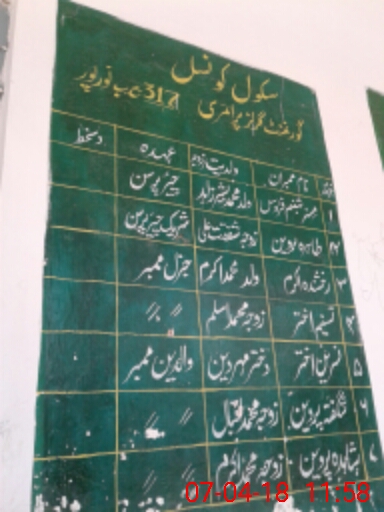 سکول کونسل
گورنمنٹ گرلز پرائمری 317 ج ب نورپور
نام ممبران ولدیت/زوجہ عہدہ دستخط
۱ مسز شبنم فردوس ولد محمد بشیر زاہد چیئرپرسن
۲ طاہرہ پروین زوجہ شفقت علی شریک چیئرپرسن
۳ رخشندہ اکرم ولد محمد اکرم جنرل ممبر
۴ نسیم اختر زوجہ محمد اسلم 〃 〃
۵ نسرین اختر دختر مہردین والدین ممبر
۶ شگفتہ پروین زوجہ محمد اقبال 〃 〃
۷ شاہدہ پروین زوجہ محمد اکرم 〃 〃
07-04-18 11:58